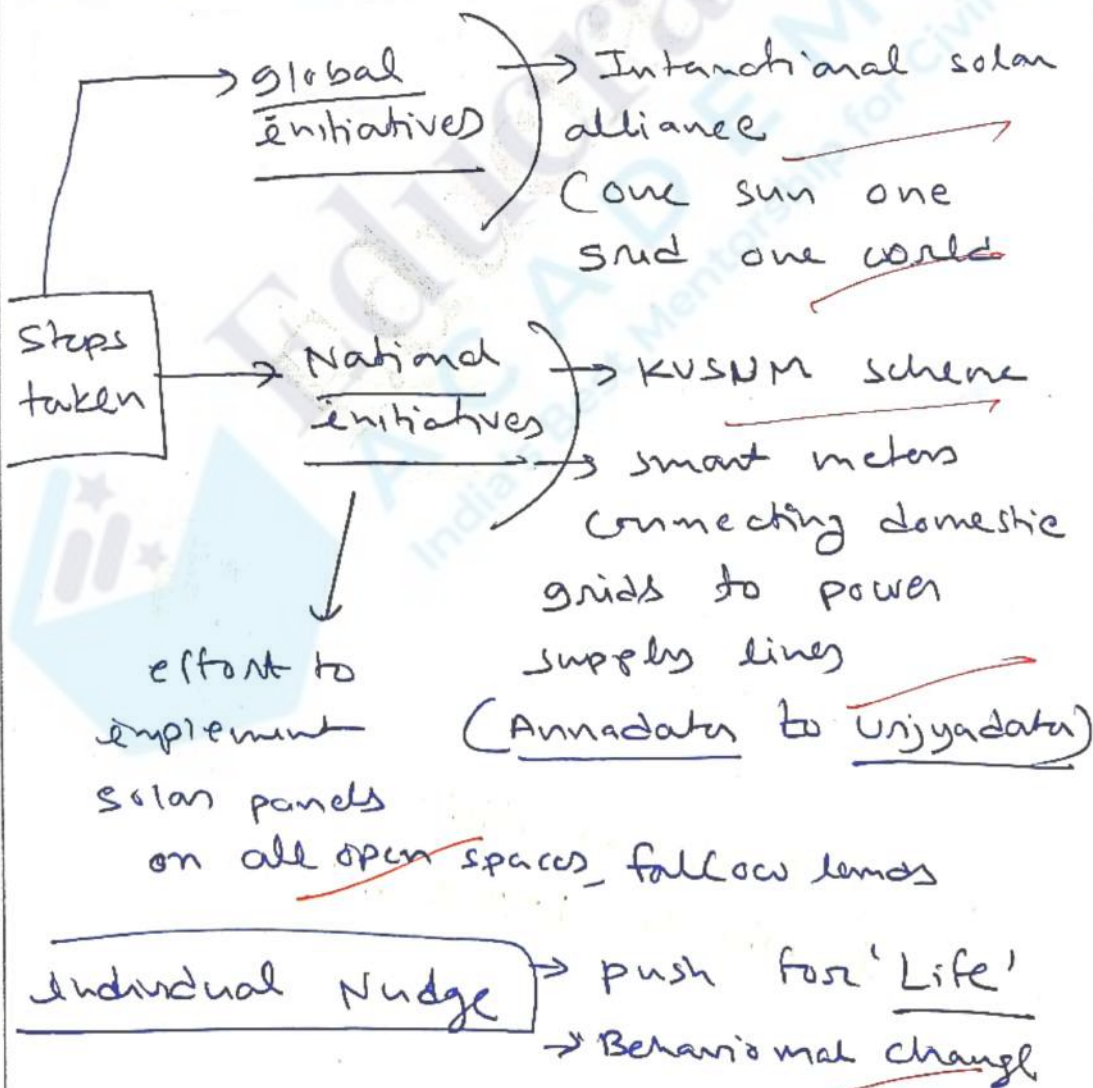 global initiatives
→ International solar
alliance
(one sun one
grid one world
Steps
taken
→ National
initiatives
→ KUSUM scheme
→ smart meters
connecting domestic
grids to power
supply lines
(Annadata to Urjyadata)
effort to
implement
solar panels
on all open spaces, fallow lands
Individual Nudge
→ push for 'Life'
→ Behavioral change
ACADEMY
India's Best Mentorship for Civil